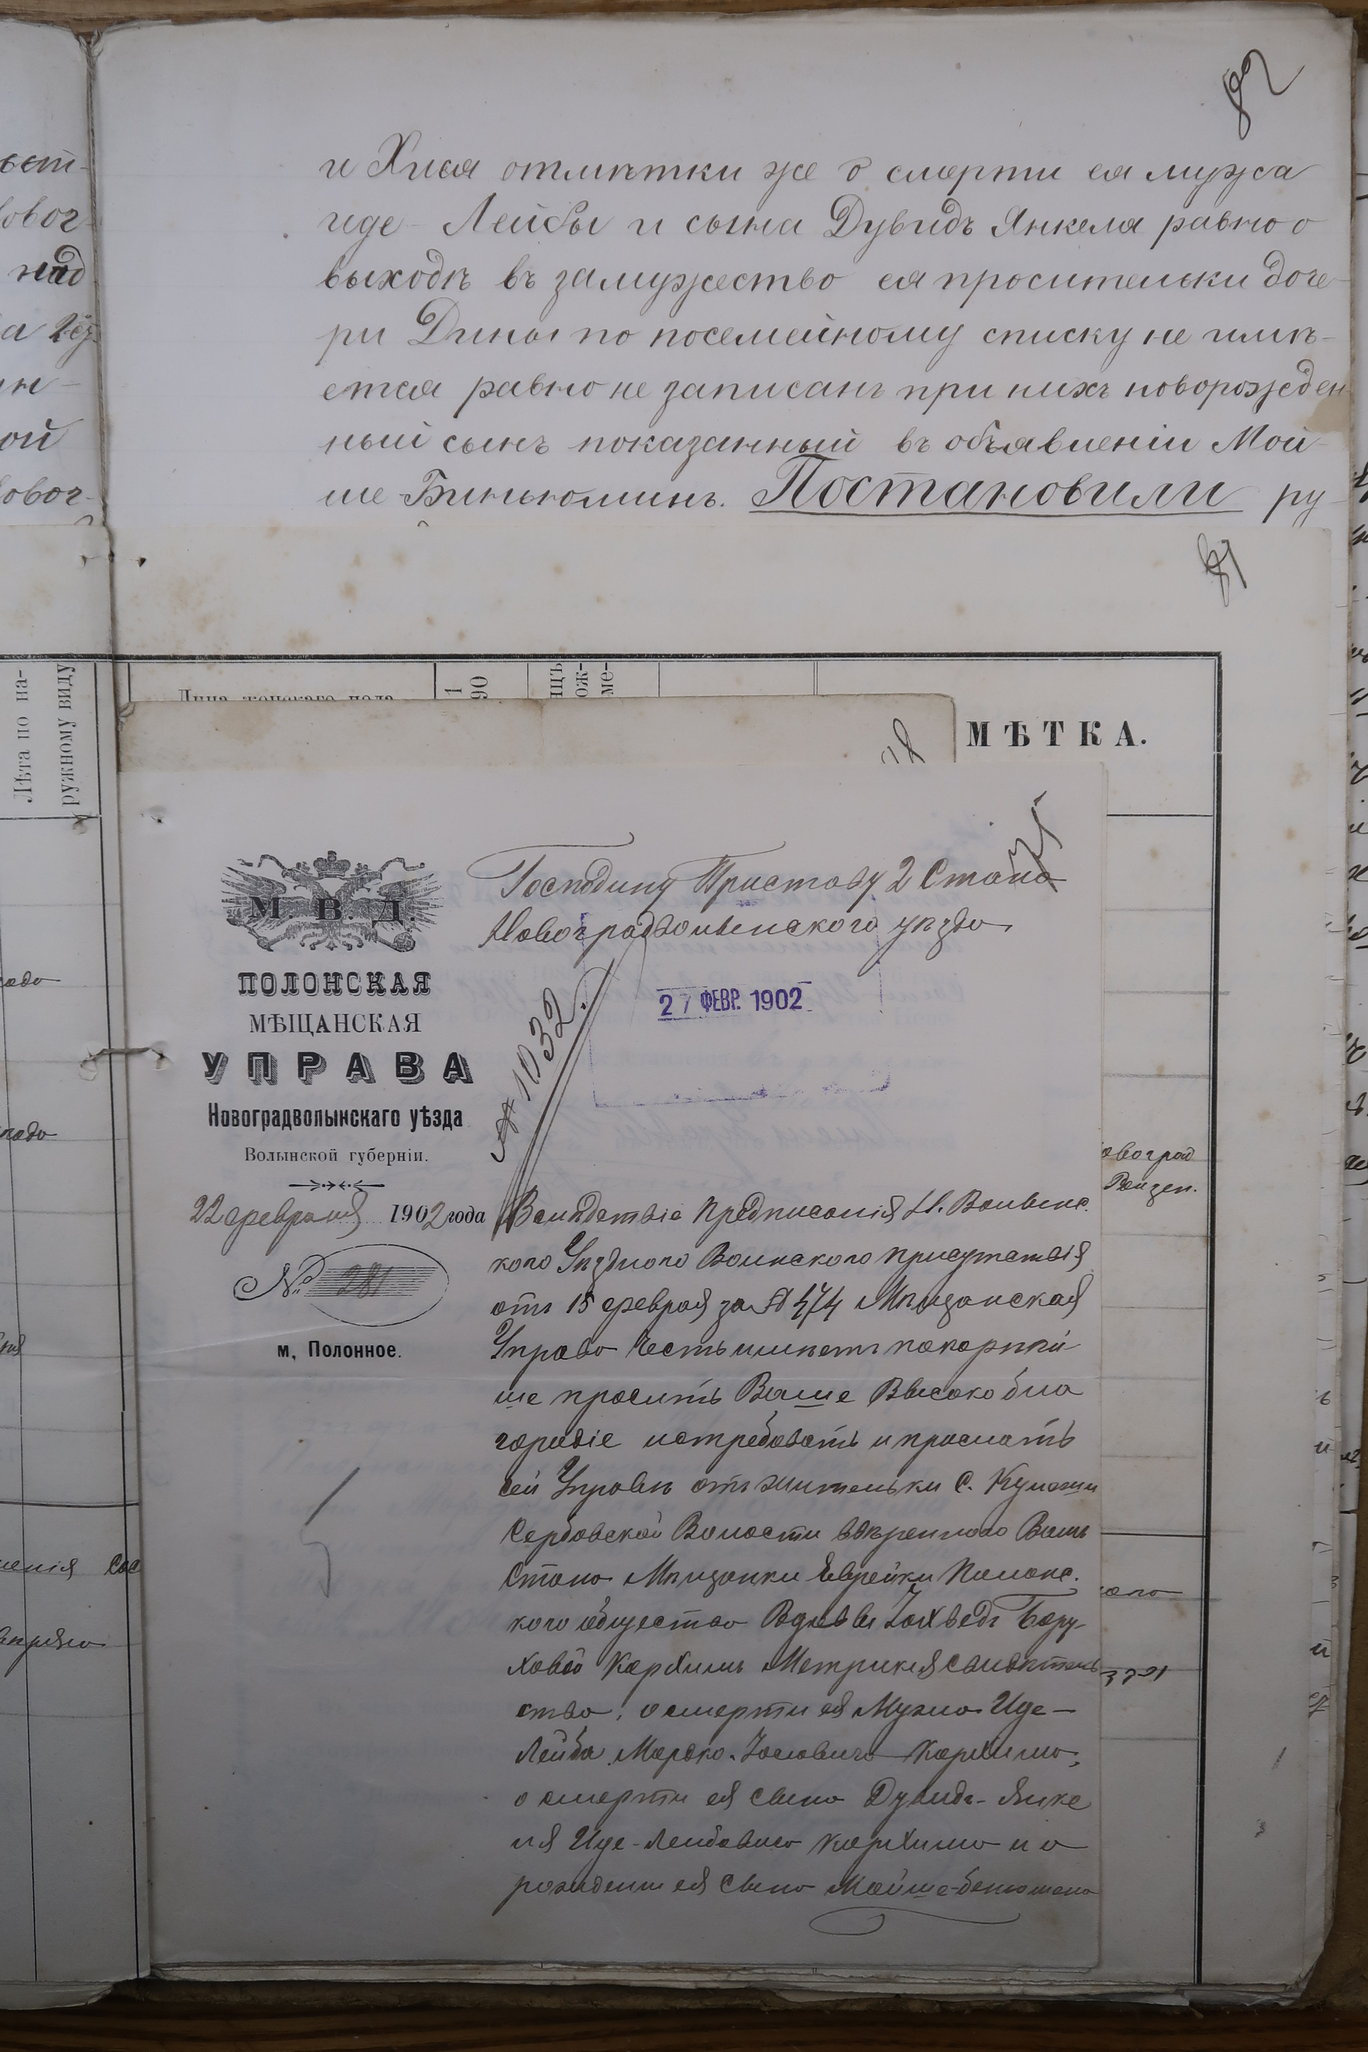 82
и Хися отмѣтки же о смерти ея мужа
иде-Лейбы и сына Дувидъ Янкеля равно о
выходѣ въ замужество ея просительки доче-
ри Дины по посемейному списку не имѣ-
ется равно не записанъ при нихъ новорожден
ный сынъ показанный въ объявленіи Мой-
ше-Биньюминъ. Постановили ру-
над
ой
Лѣта по на-
ружному виду
Лица женскаго пола
1
90
нцъ
ож-
ме-
МѢТКА.
М. В. Д.
ПОЛОНСКАЯ
МѢЩАНСКАЯ
УПРАВА
Новоградволынскаго уѣзда
Волынской губерніи.
22 февраля 1902 года
№ 281
м. Полонное.
Господину Приставу 2 Стана
Новоградволынскаго уѣзда
27 ФЕВР. 1902
№ 1032.
Вслѣдствіе предписанія Н. Волынс.
кого Уѣзднаго Воинского присутствія
отъ 15 февраля за № 474 Мѣщанская
Управа честь имѣетъ покорнѣй
ше просить Ваше Высокобла
городіе истребовать и прослать
сей Управѣ отъ жительки с.
Сербовской Волости ввѣренного Вамъ
Стана Мѣщанки Еврейки Полонс.
кого общества Вдовы Іохведъ Беру-
ховой Карлинъ Метрическія свидѣтель
ства: о смерти ея Мужа Иде-
Лейба Мордко-Іосовича
о смерти ея сына Дувидъ-Янке
ля Иде-Лейбовича и о
рожденіи ея сына Мойше-Бенюмена